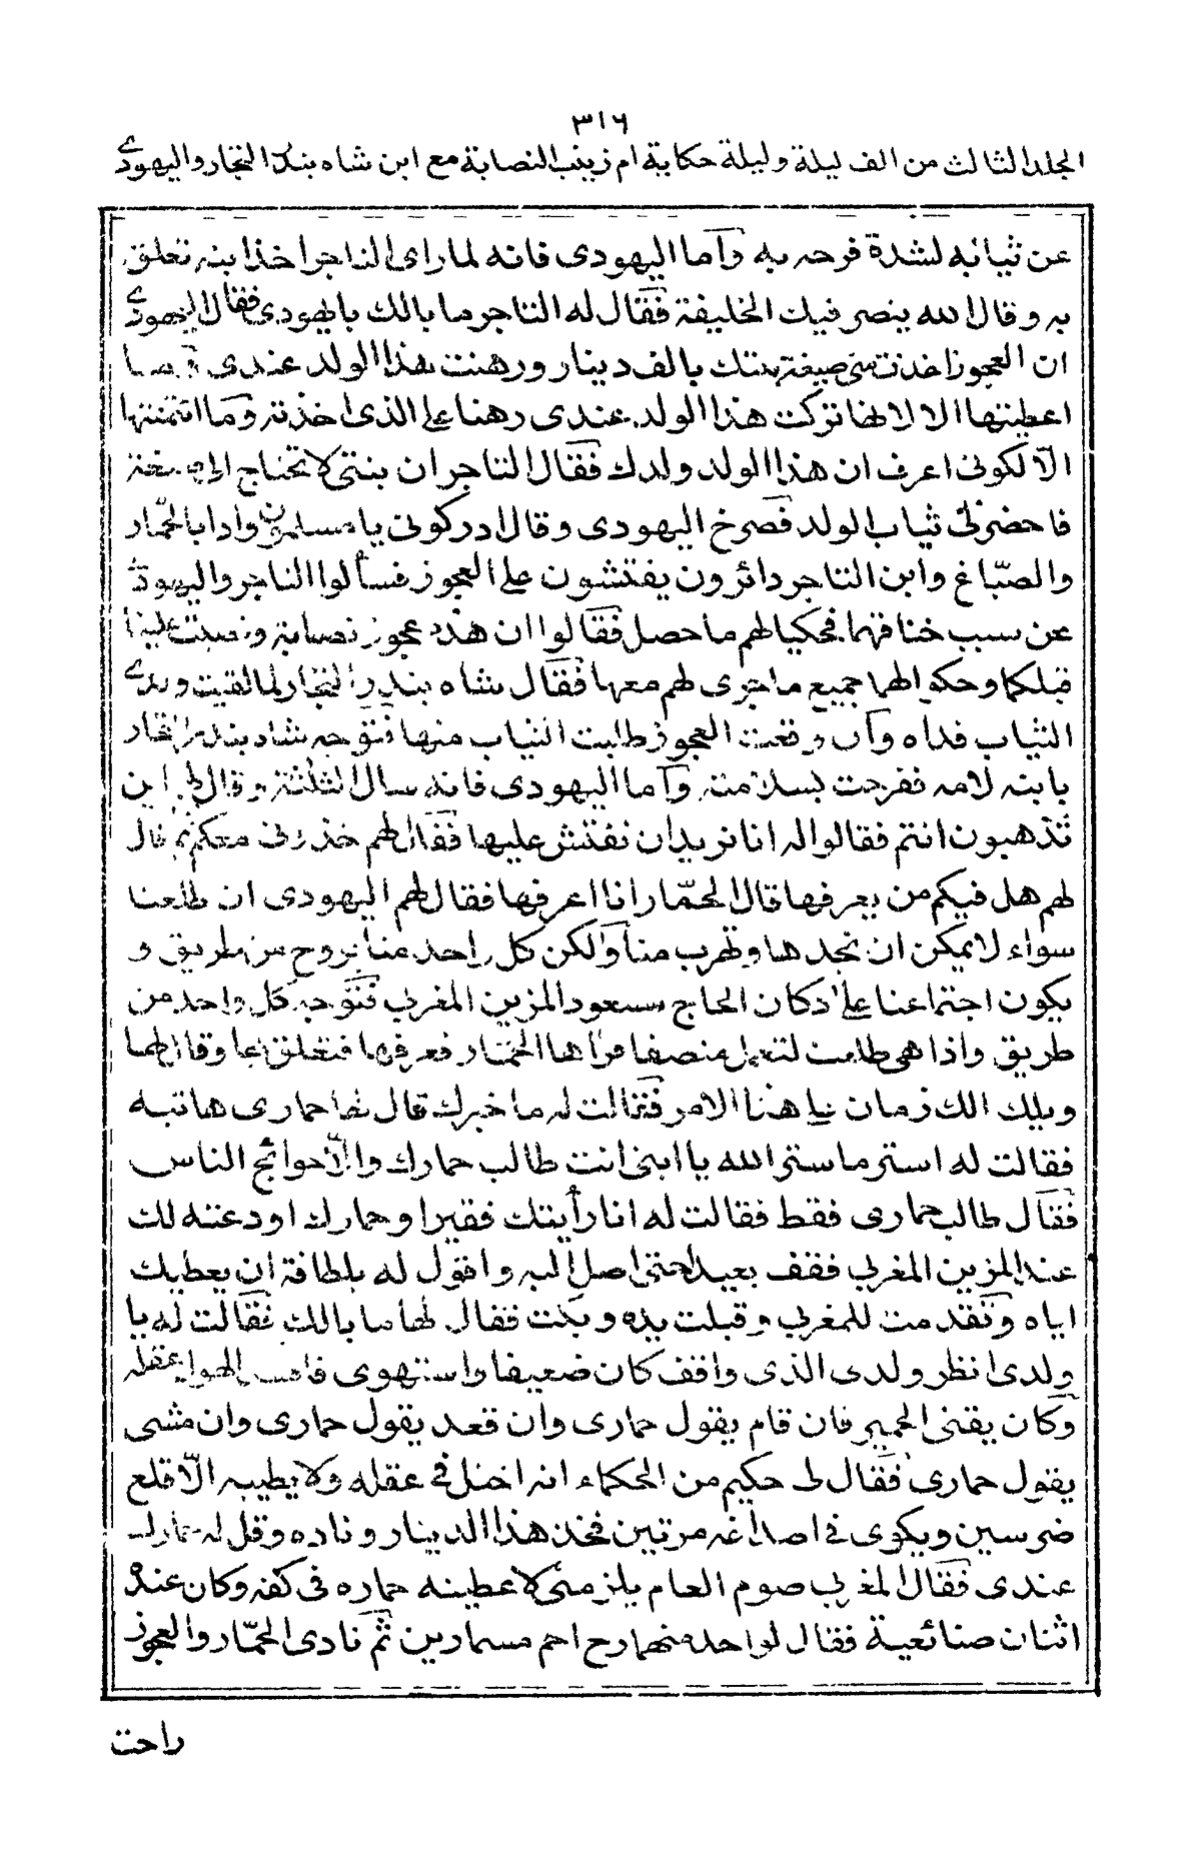 ٣١٦
المجلد الثالث من الف ليلة وليلة حكاية ام زينب النصابة مع ابن شاه بندر التجار واليهودى
عن ثيابه لشدة فرحه به وآما اليهودى فانه لما راى التاجر اخذ ابنه تعلق
به وقال الله ينصر فيك الخليفة فقال له التاجر ما بالك يا يهودى فقال اليهودى
ان العجوز اخذت منى صيغة بنتك بالف دينار ورهنت هذا الولد عندى وما
اعطيتها الا لانها تركت هذا الولد عندى رهنا على الذى اخذته وما ائتمنتها
الّا لكونى اعرف ان هذا الولد ولدك فقال التاجر ان بنتى لا تحتاج الى صيغة
فاحضر لى ثياب الولد فصرخ اليهودى وقال ادركونى يا مسلمون واذا بالحمّار
والصبّاغ وابن التاجر دائرون يفتشون على العجوز فسألوا التاجر واليهودى
عن سبب خناقهما فحكيا لهم ما حصل فقالوا ان هذه عجوز نصابة ونصبت علينا
قبلكما وحكوا لهما جميع ما جرى لهم معها فقال شاه بندر التجار لما لقيت ولدى
الثياب فداه وآن وقعت العجوز طلبت الثياب منها فتوجه شاه بندر التجار
بابنه لامه ففرحت بسلامته وآما اليهودى فانه سال الثلثة وقال لهم اين
تذهبون انتم فقالوا له انا نريد ان نفتش عليها فقال لهم خذونى معكم ثم قال
لهم هل فيكم من يعرفها قال الحمّار انا اعرفها فقال لهم اليهودى ان طلعنا
سواء لا يمكن ان نجدها وتهرب منا ولكن كل واحد منا يروح من طريق و
يكون اجتماعنا على دكان الحاج مسعود المزين المغربى فتوجه كل واحد من
طريق واذا هى طلعت لتعمل منصفا فراها الحمّار فعرفها فتعلق بها وقال لها
ويلك الك زمان على هذا الامر فقالت له ما خبرك قال لها حمارى هاتيه
فقالت له استر ما ستر الله يا ابنى انت طالب حمارك والّا حوائج الناس
فقال طالب حمارى فقط فقالت له انا رأيتك فقيرا وحمارك اودعته لك
عند المزين المغربى فقف بعيدا حتى اصل اليه واقول له بلطافة ان يعطيك
اياه وتقدمت للمغربى وقبلت يده وبكت فقال لها ما بالك فقالت له يا
ولدى انظر ولدى الذى واقف كان ضعيفا واستهوى فافسد الهواء عقله
وكان يقنى الحمير فان قام يقول حمارى وان قعد يقول حمارى وان مشى
يقول حمارى فقال لى حكيم من الحكماء انه اختل فى عقله ولا يطيبه الّا قلع
ضرسين ويكوى فى اصداغه مرتين فخذ هذا الدينار وناده وقل له حمارك
عندى فقال المغربى صوم العام يلزمنى لاعطينه حماره فى كفه وكان عنده
اثنان صنائعية فقال لواحد منهما رح احم مسمارين ثم نادى الحمّار والعجوز
راحت